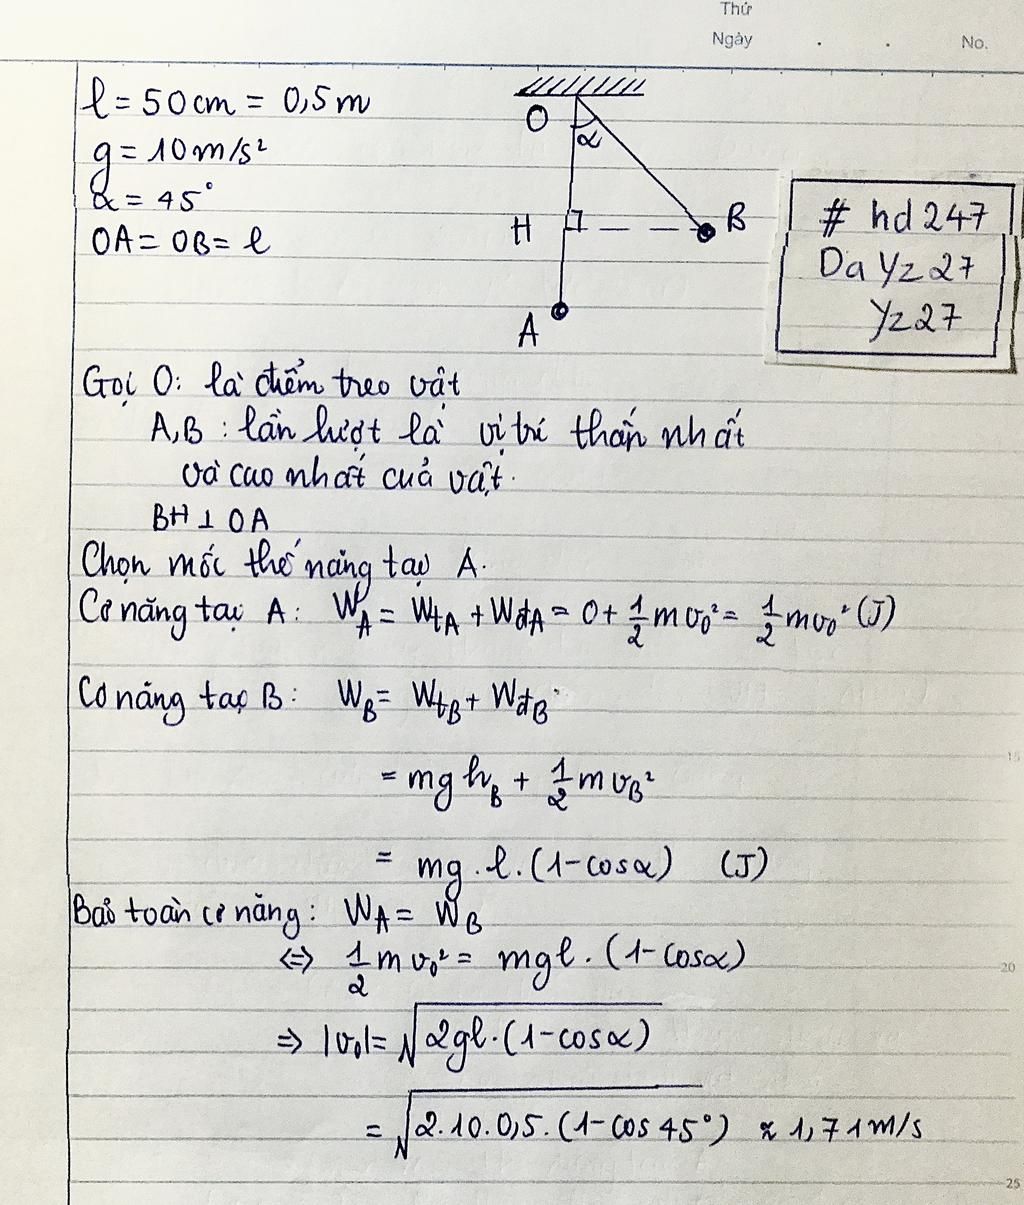 Thứ
Ngày . . No.
l = 50cm = 0,5m
g = 10m/s²
α = 45°
OA = OB = l
O
α
H
B
A
# hd247
Da Yz27
Yz27
Gọi O: là điểm treo vật
A,B : lần lượt là vị trí thấp nhất
và cao nhất của vật.
BH ⊥ OA
Chọn mốc thế năng tại A.
Cơ năng tại A: W_A = W_tA + W_đA = 0 + 1/2 mv₀² = 1/2 mv₀² (J)
Cơ năng tại B: W_B = W_tB + W_đB
= mgh_B + 1/2 mv_B²
15
= mg.l.(1-cosα) (J)
Bảo toàn cơ năng: W_A = W_B
⇔ 1/2 mv₀² = mgl.(1-cosα)
20
⇒ |v₀| = √(2gl.(1-cosα))
= √(2.10.0,5.(1-cos45°)) ≈ 1,71m/s
25